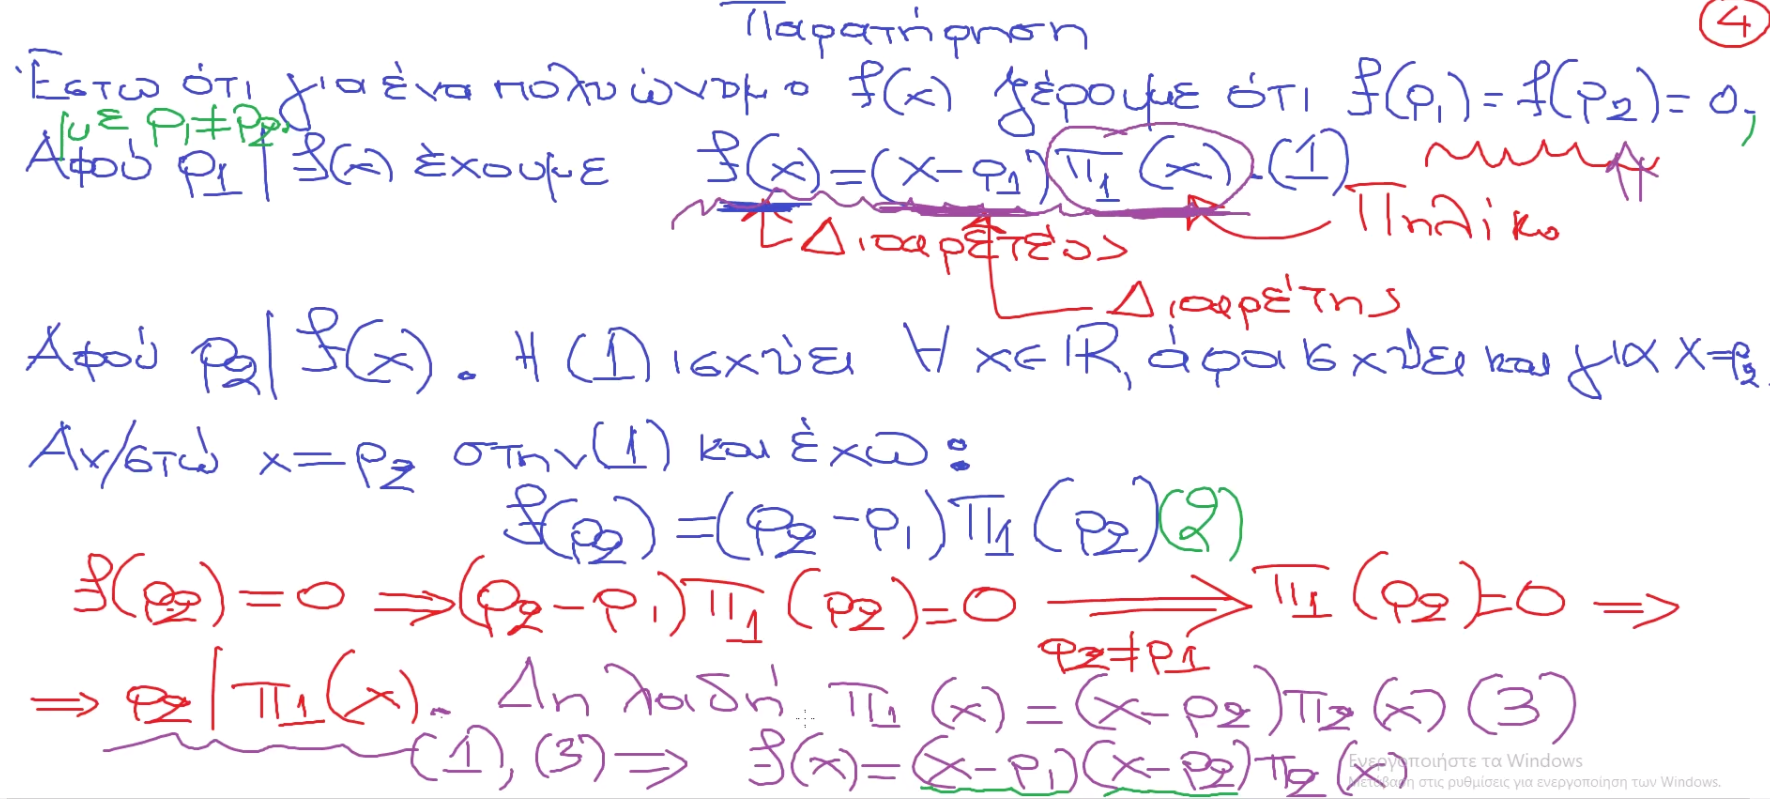 Παρατήρηση
④
Έστω ότι για ένα πολυώνυμο f(x) ξέρουμε ότι f(ρ₁)=f(ρ₂)=0,
με ρ₁≠ρ₂.
Αφού ρ₁|f(x) έχουμε f(x)=(x-ρ₁)π₁(x).(1)
Διαιρετέος
Πηλίκο
Διαιρέτης
Αφού ρ₂|f(x). Η (1) ισχύει ∀ x∈ℝ, άρα ισχύει και για x=ρ₂.
Αν/στώ x=ρ₂ στην (1) και έχω:
f(ρ₂)=(ρ₂-ρ₁)π₁(ρ₂)(2)
f(ρ₂)=0 ⇒(ρ₂-ρ₁)π₁(ρ₂)=0 ⟹ π₁(ρ₂)=0 ⇒
ρ₂≠ρ₁
⇒ ρ₂|π₁(x). Δηλαδή π₁(x)=(x-ρ₂)π₂(x)(3)
(1),(3)⇒ f(x)=(x-ρ₁)(x-ρ₂)π₂(x)
Ενεργοποιήστε τα Windows
Μετάβαση στις ρυθμίσεις για ενεργοποίηση των Windows.